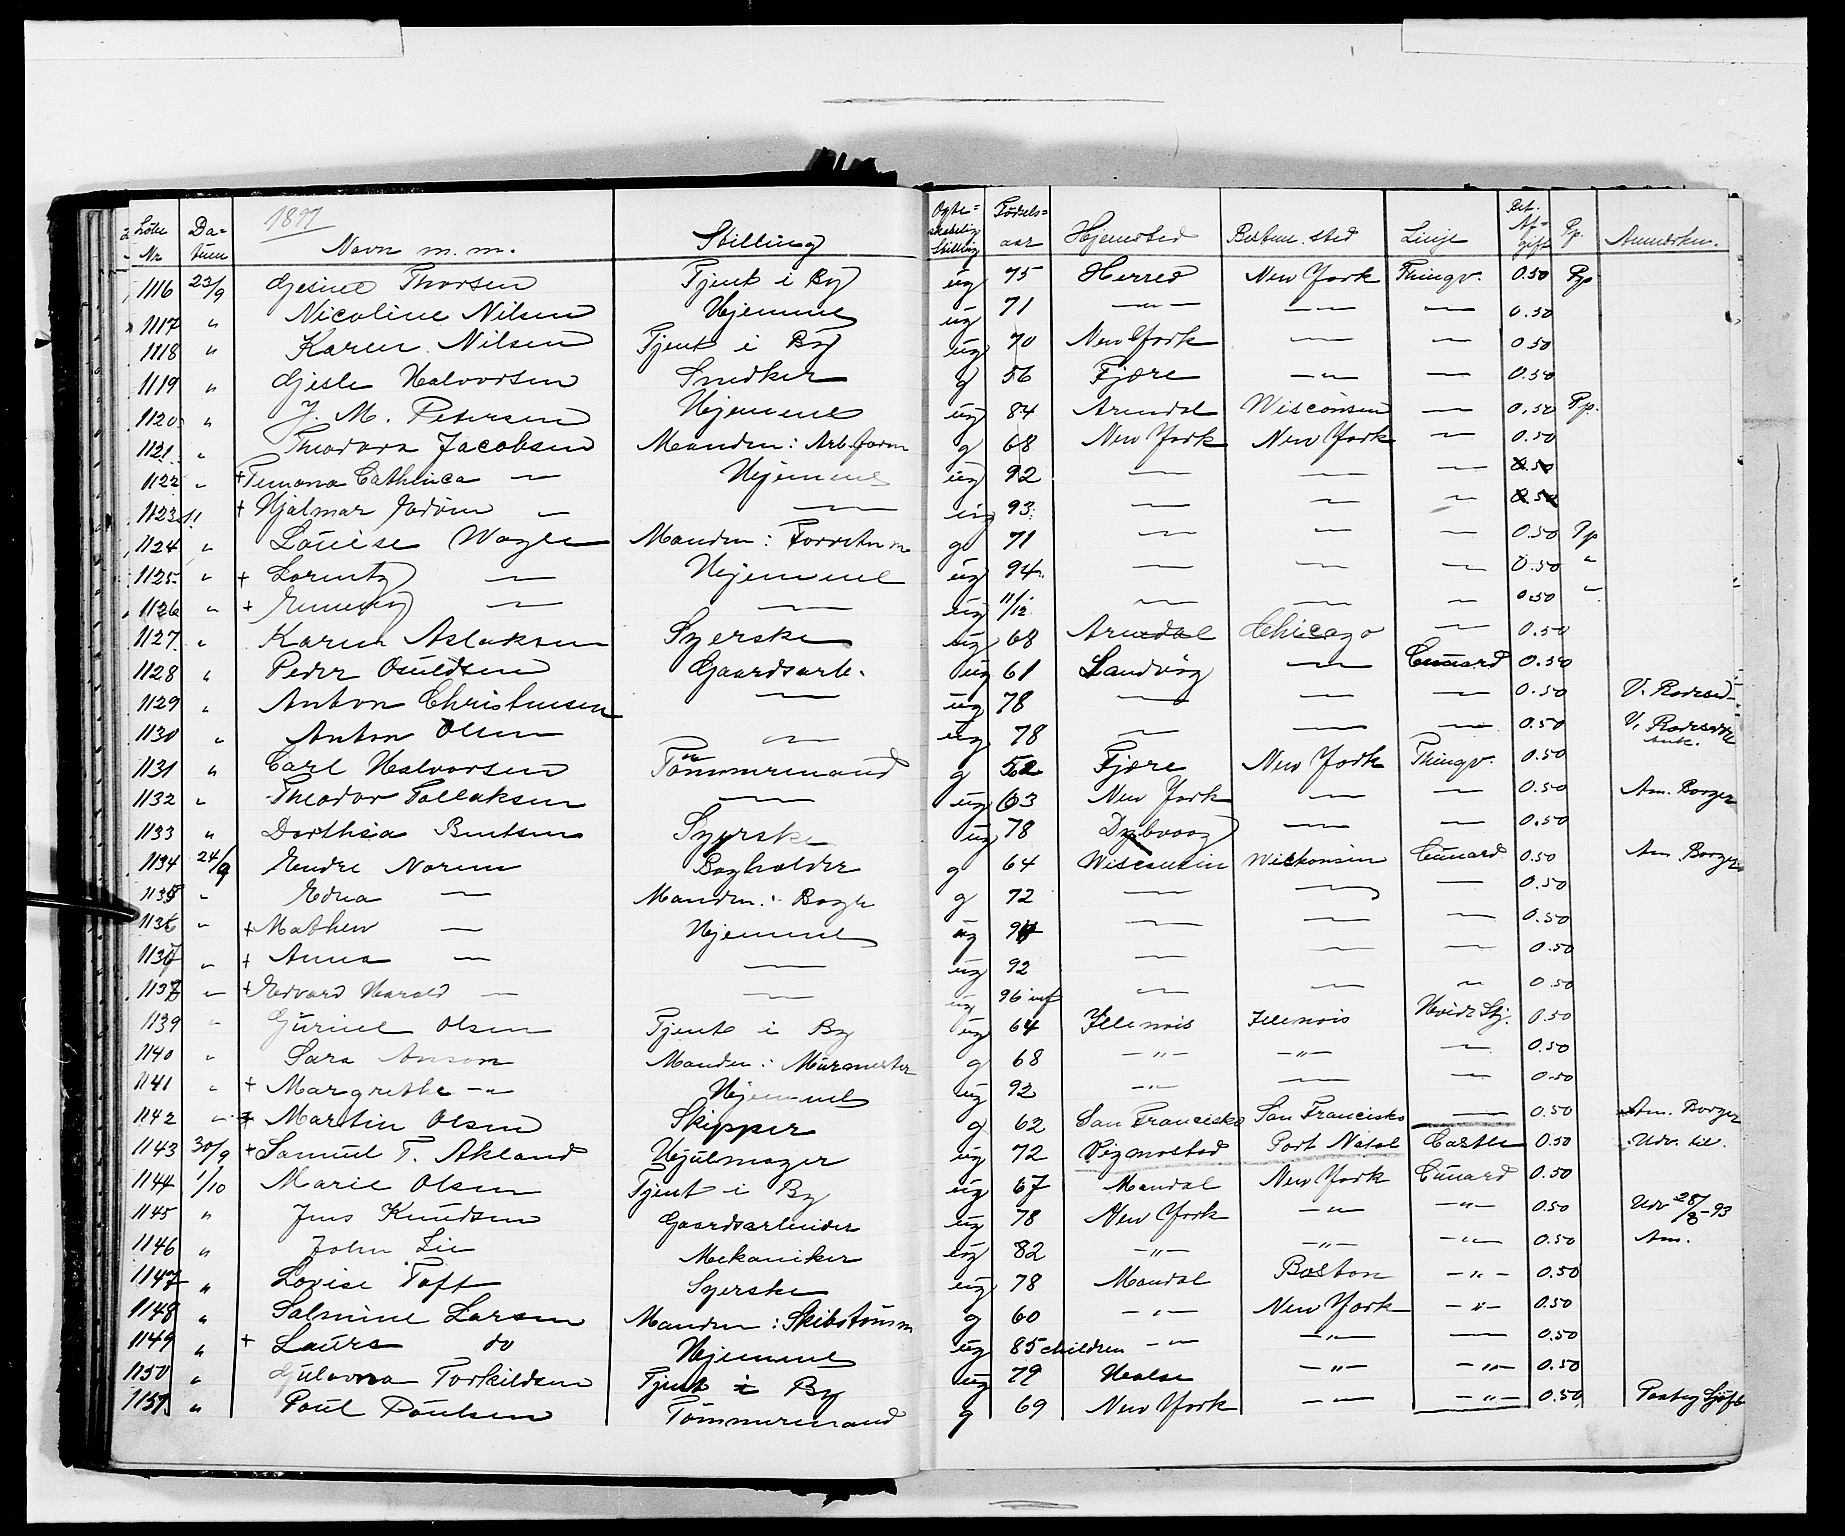 1897
Løbe Nr Datum Navn m.m. Stilling Ægteskabelig Stilling Fødselsaar Hjemsted Bestem. sted Linje Bet. Afgift Pp. Anmerkn.
1116 23/9 Gjesine Thorsen Tjent i By ug 75 Herred New York Thingv. 0.50 Pp
1117 " Nicoline Nilsen Hjemme ug 71 — " — — " — — 0.50
1118 " Karen Nilsen Tjent i By ug 70 New York — — 0.50
1119 " Gjesle Halvorsen Snedker g 56 Fjære — " — — 0.50
1120 " J. M. Petersen Hjemme ug 84 Arendal Wisconsin — 0.50 Pp.
1121 " Theodora Jacobsen Manden: Arb.form g 68 New York New York — 0.50
1122 " + Temona Cathinca — Hjemme ug 92 — — — 0.50
1123 " + Hjalmar — — ug 93 — — — 0.50
1124 " Louise Wagle Manden: g 71 — — — 0.50 Pp
1125 " + Lorentz — Hjemme ug 94 — — — 0.50 "
1126 " + — — ug 11/12 — — — 0.50 "
1127 " Karen Aslaksen Syerske ug 68 Arendal Chicago — 0.50
1128 " Peder Osuldsen Gaardsarb. ug 61 Landvig — Cunard 0.50
1129 " Anton Christensen — ug 78 — — — 0.50 V.
1130 " Anton Olsen — ug 78 — — — 0.50 V.
1131 " Carl Halvorsen Tømmermand g 52 Fjære New York Thingv. 0.50
1132 " Theodor Tallaksen — ug 63 New York — — 0.50 Am. Borger
1133 " Dorthea Bentsen Syerske ug 78 Dybvaag — — 0.50
1134 24/9 Endre Norem Bogholder g 64 Wisconsin Wiskonsin Cunard 0.50 Am Borger
1135 " Edna — Manden: Bogh g 72 — — — 0.50
1136 " + Mathew — Hjemme ug 94 — — — 0.50
1137 " + Anna — — ug 92 — — — 0.50
1138 " + Edvard Harald — — ug 96 inf — — — 0.50
1139 " Guriel Olsen Tjent i By ug 64 Illenois Illenois Hvide Stj. 0.50
1140 " Sara Anson Manden: Murmester g 68 — " — — " — — 0.50
1141 " + Margrethe — " Hjemme ug 92 — " — — — 0.50
1142 " + Martin Olsen Skipper g 62 San Francisko San Francisko — 0.50 Am. Borger
1143 30/9 + Samuel T. Akland Hjulmager ug 72 Vigmostad Port Natal Castle 0.50 Udv. til.
1144 1/10 Marie Olsen Tjent i By ug 67 Mandal New York Cunard 0.50
1145 " Jens Knudsen Gaardsarbeider ug 78 New York — " — — " — 0.50 Udv 28/8-93
1146 " John Lie Mekaniker ug 82 — " — — " — — " — 0.50 Am.
1147 " Lovise Toft Syerske ug 78 Mandal Boston — " — 0.50
1148 " Salmine Larsen Manden: Skibstømm g 60 — " — New York — " — 0.50
1149 " + Laurs do Hjemme ug 85 children — " — — " — — 0.50
1150 " Gulovna Torkildsen Tjent i By ug 79 Halse — " — — " — 0.50
1151 " Poul Poulsen Tømmermand g 69 New York — " — — " — 0.50